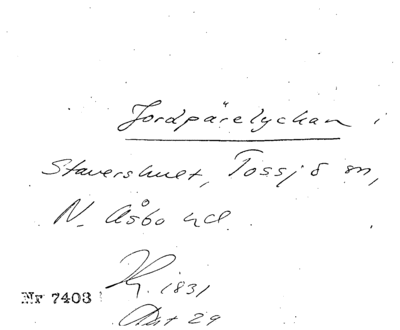 Jordpärelyckan i
Stavershult, Tossjö sn,
N. Åsbo hd.
K. 1831
Nr 7403
Akt 29